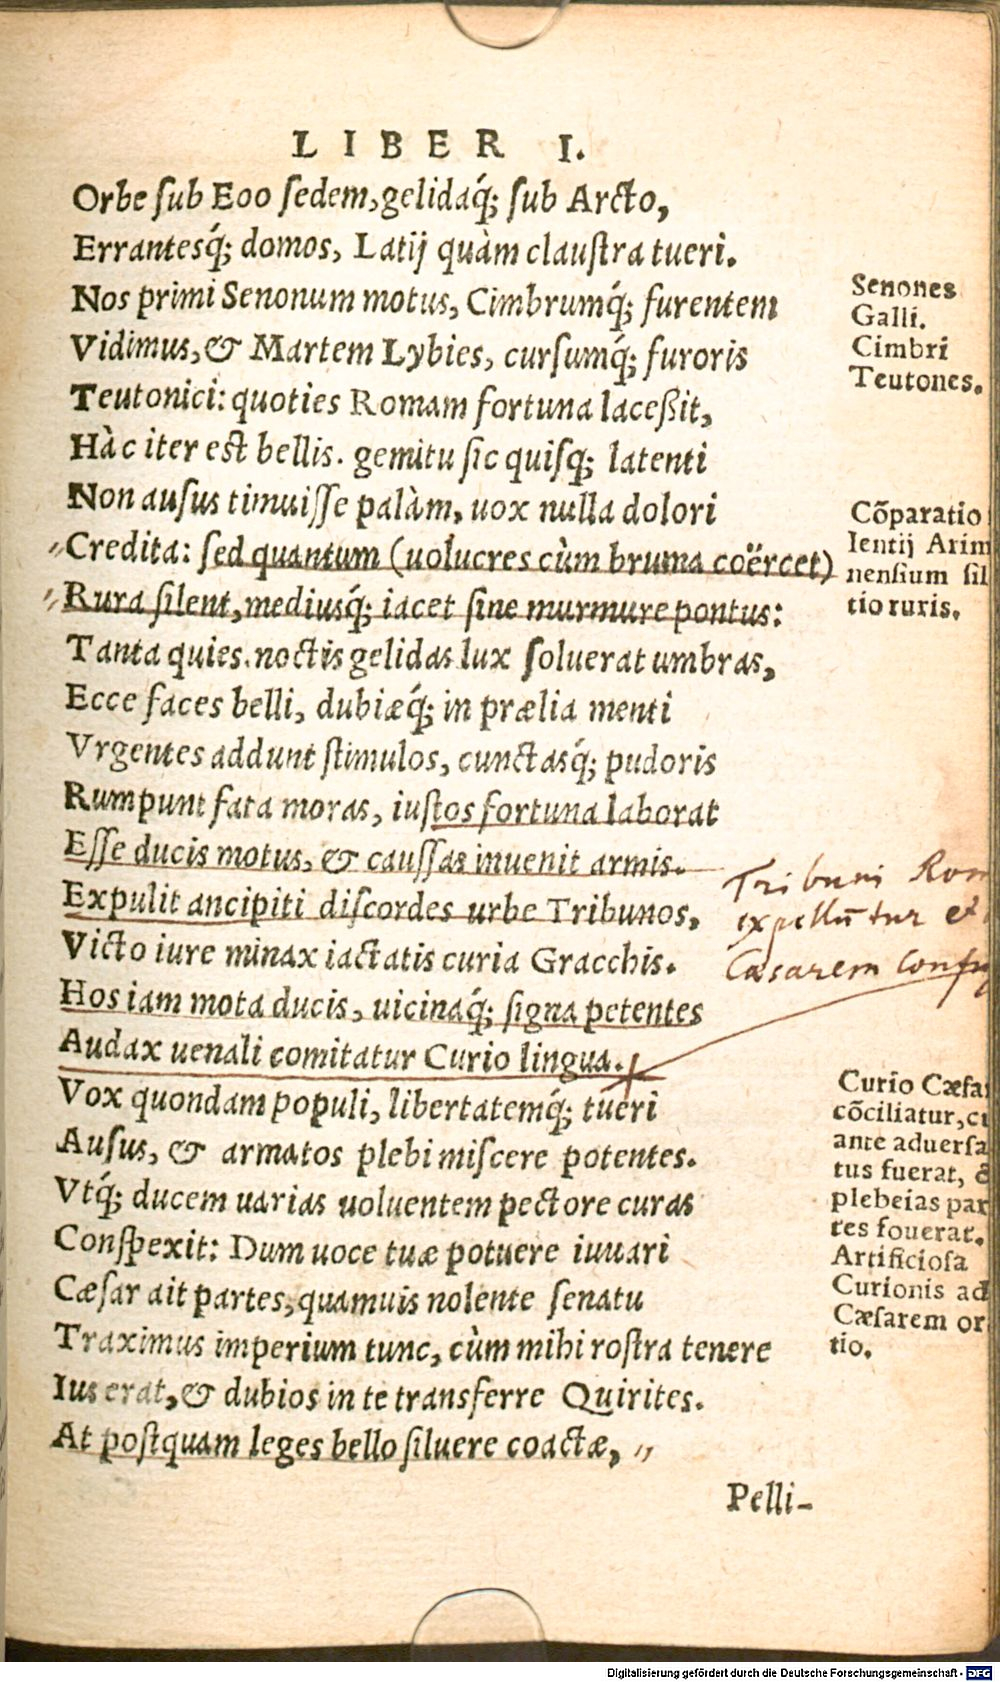 LIBER I.
Orbe sub Eoo sedem, gelidaq́; sub Arcto,
Errantesq́; domos, Latij quàm claustra tueri.
Nos primi Senonum motus, Cimbrumq́; furentem
Vidimus, & Martem Lybies, cursumq́; furoris
Teutonici: quoties Romam fortuna laceßit,
Hàc iter est bellis. gemitu sic quisq; latenti
Non ausus timuisse palàm, uox nulla dolori
〃Credita: sed quantum (uolucres cùm bruma coërcet)
〃Rura silent, mediusq́; iacet sine murmure pontus:
Tanta quies. noctis gelidas lux soluerat umbras,
Ecce faces belli, dubiæq́; in prælia menti
Vrgentes addunt stimulos, cunctasq́; pudoris
Rumpunt fata moras, iustos fortuna laborat
Esse ducis motus, & caussas inuenit armis.
Expulit ancipiti discordes urbe Tribunos,
Victo iure minax iactatis curia Gracchis.
Hos iam mota ducis, uicinaq́; signa petentes
Audax uenali comitatur Curio lingua.
Vox quondam populi, libertatemq́; tueri
Ausus, & armatos plebi miscere potentes.
Vtq́; ducem uarias uoluentem pectore curas
Conspexit: Dum uoce tuæ potuere iuuari
Cæsar ait partes, quamuis nolente senatu
Traximus imperium tunc, cùm mihi rostra tenere
Ius erat, & dubios in te transferre Quirites.
At postquam leges bello siluere coactæ, 〃
Pelli-
Senones
Galli.
Cimbri
Teutones.
Cõparatio
lentij Arim
nensium sil
tio ruris.
Tribuni Rom
expellũtur et
Cæsarem Confu
Curio Cæsa
cõciliatur, cu
ante aduersa
tus fuerat, &
plebeias par
tes fouerat.
Artificiosa
Curionis ad
Cæsarem or
tio.
Digitalisierung gefördert durch die Deutsche Forschungsgemeinschaft - DFG